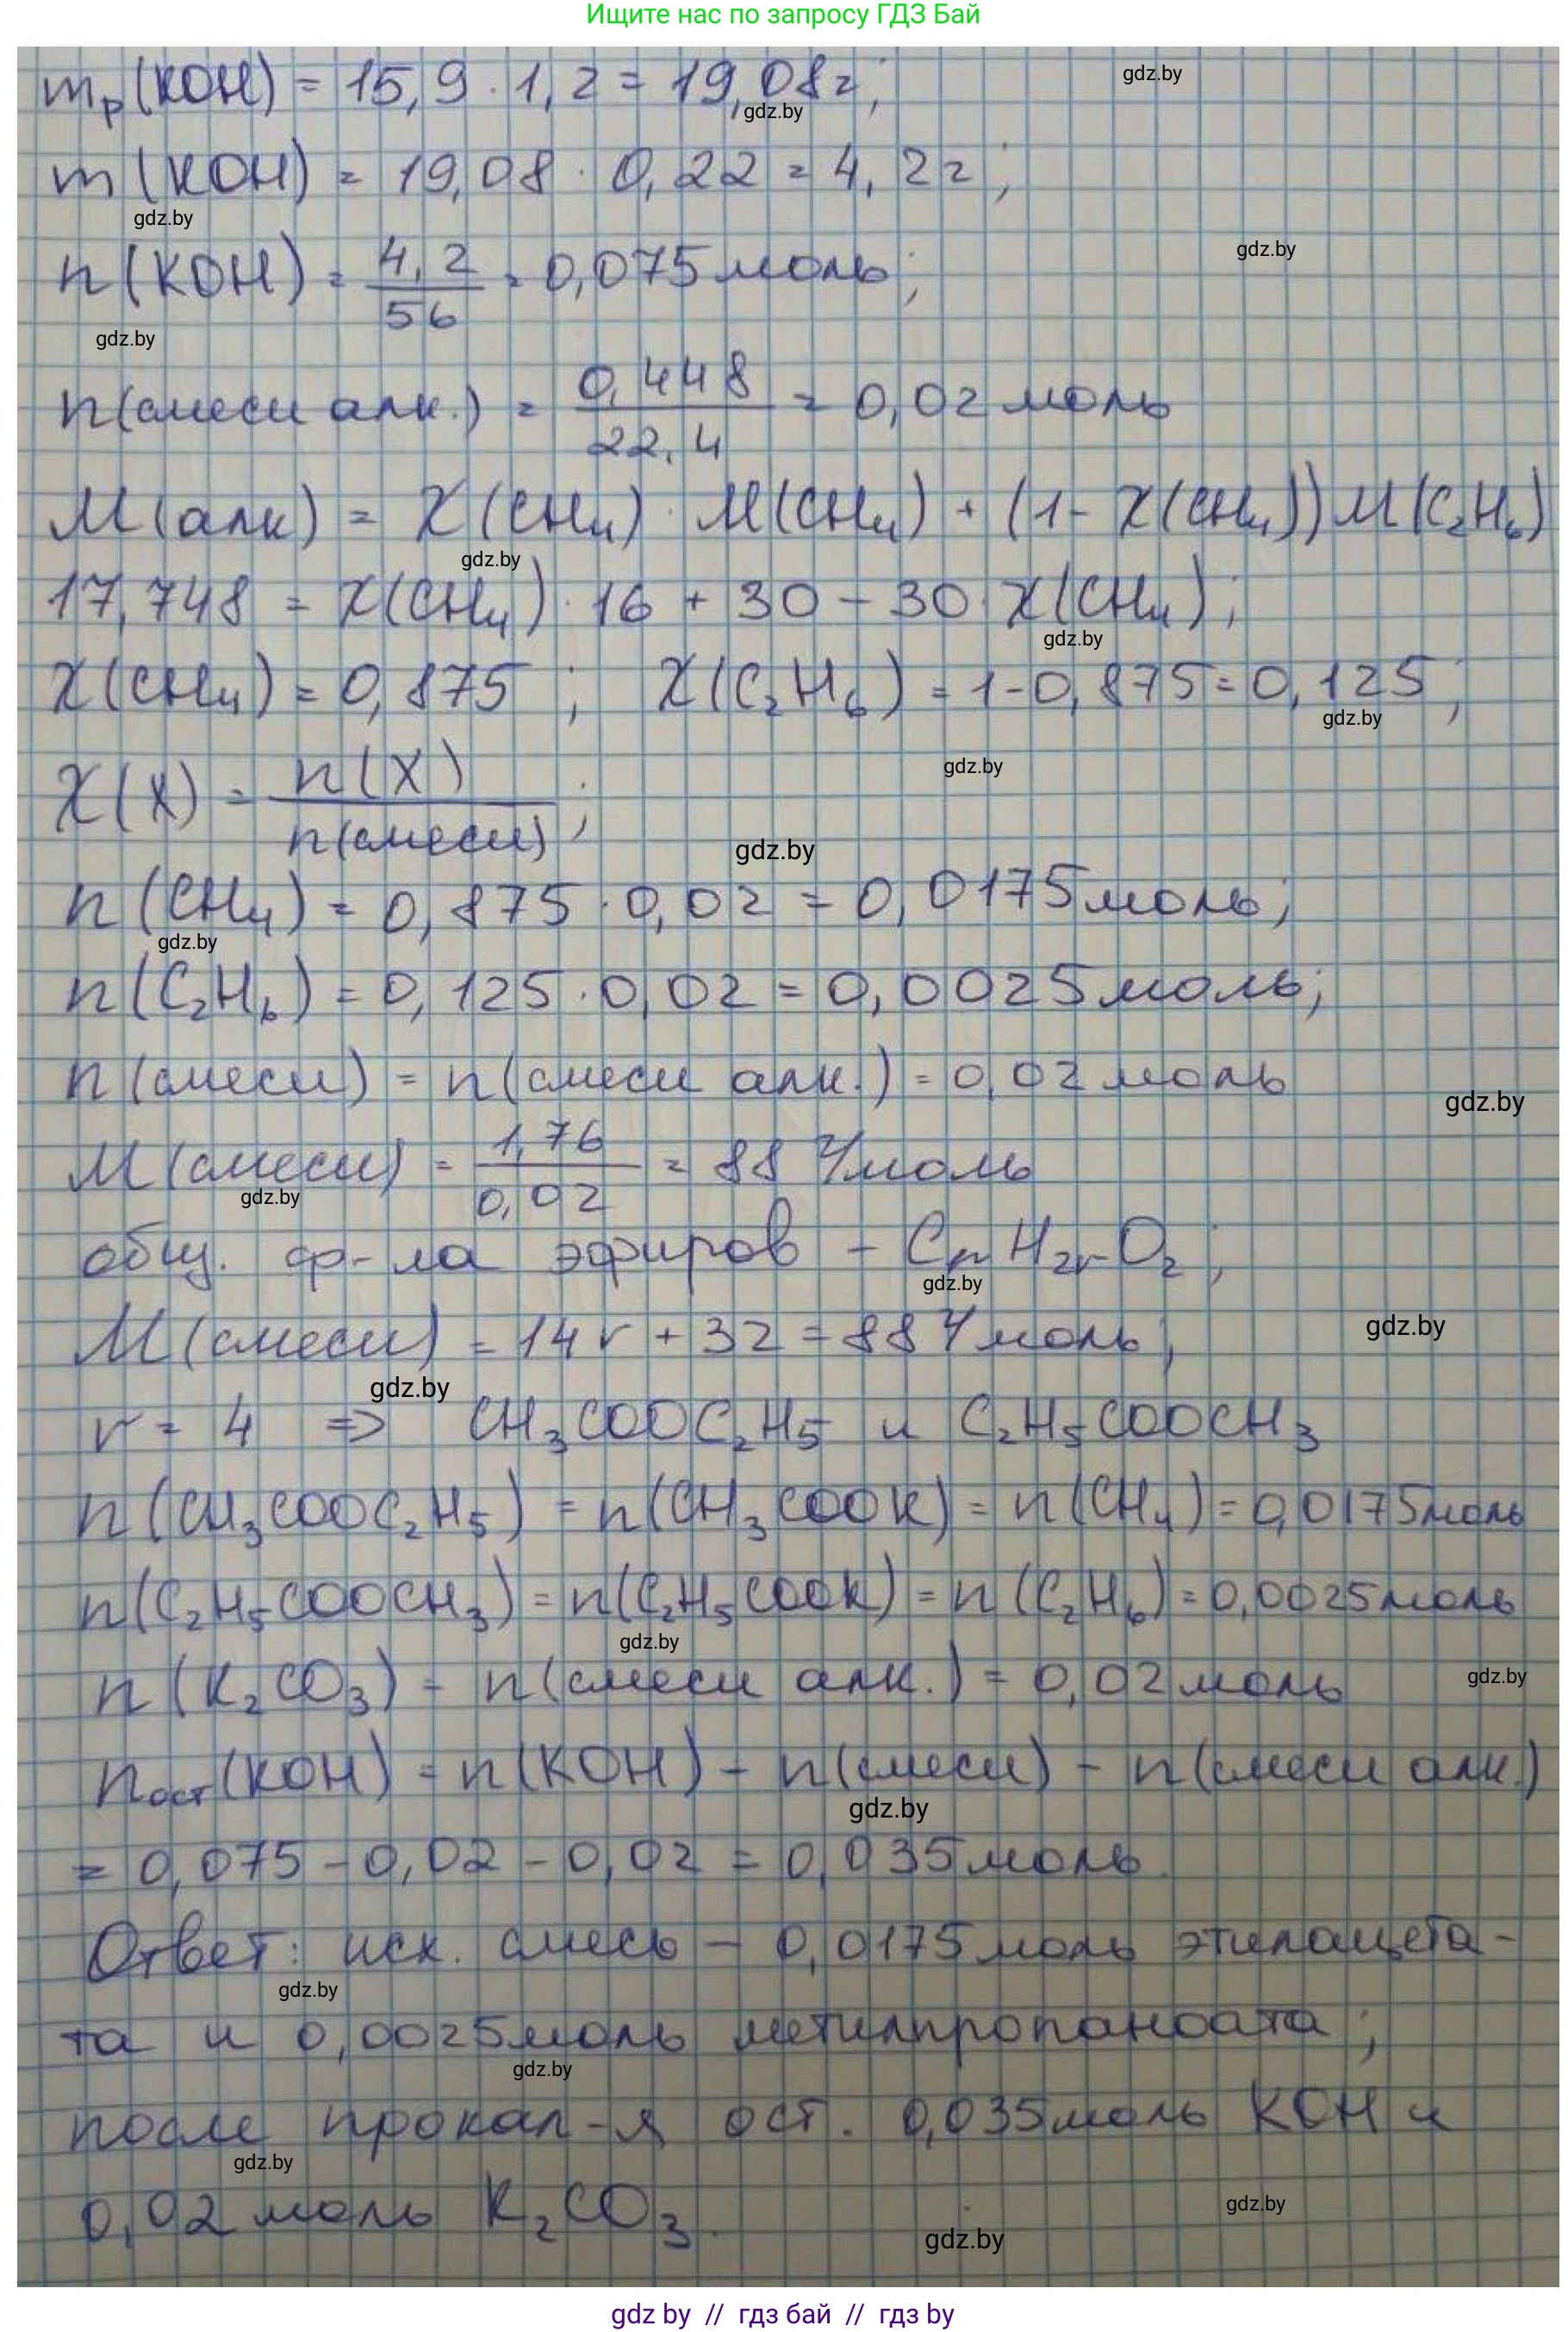 Ищите нас по запросу ГДЗ Бай
mр(KOH) = 15,9 · 1,2 = 19,08г;
gdz.by
gdz.by
m(KOH) = 19,08 · 0,22 = 4,2г;
gdz.by
n(KOH) = 4,2/56 = 0,075 моль;
gdz.by
gdz.by
n(смеси алк.) = 0,448/22,4 = 0,02 моль
M(алк) = χ(CH₄) · M(CH₄) + (1 - χ(CH₄)) M(C₂H₆)
gdz.by
17,748 = χ(CH₄) · 16 + 30 - 30 · χ(CH₄);
gdz.by
χ(CH₄) = 0,875 ; χ(C₂H₆) = 1-0,875 = 0,125;
gdz.by
gdz.by
χ(X) = n(X)/n(смеси);
gdz.by
n(CH₄) = 0,875 · 0,02 = 0,0175 моль;
gdz.by
n(C₂H₆) = 0,125 · 0,02 = 0,0025 моль;
n(смеси) = n(смеси алк.) = 0,02 моль
gdz.by
M(смеси) = 1,76/0,02 = 88 г/моль
gdz.by
общ. ф-ла эфиров - CₙH₂ₙO₂;
gdz.by
M(смеси) = 14n + 32 = 88 г/моль;
gdz.by
gdz.by
n = 4 => CH₃COOC₂H₅ и C₂H₅COOCH₃
n(CH₃COOC₂H₅) = n(CH₃COOK) = n(CH₄) = 0,0175 моль
n(C₂H₅COOCH₃) = n(C₂H₅COOK) = n(C₂H₆) = 0,0025 моль
gdz.by
n(K₂CO₃) = n(смеси алк.) = 0,02 моль
gdz.by
nост(KOH) = n(KOH) - n(смеси) - n(смеси алк.)
gdz.by
= 0,075 - 0,02 - 0,02 = 0,035 моль.
Ответ: исх. смесь - 0,0175 моль этилацета-
gdz.by
та и 0,0025 моль метилпропаноата;
gdz.by
после прокал-я ост. 0,035 моль KOH и
gdz.by
0,02 моль K₂CO₃.
gdz.by
gdz.by
gdz by // гдз бай // гдз by